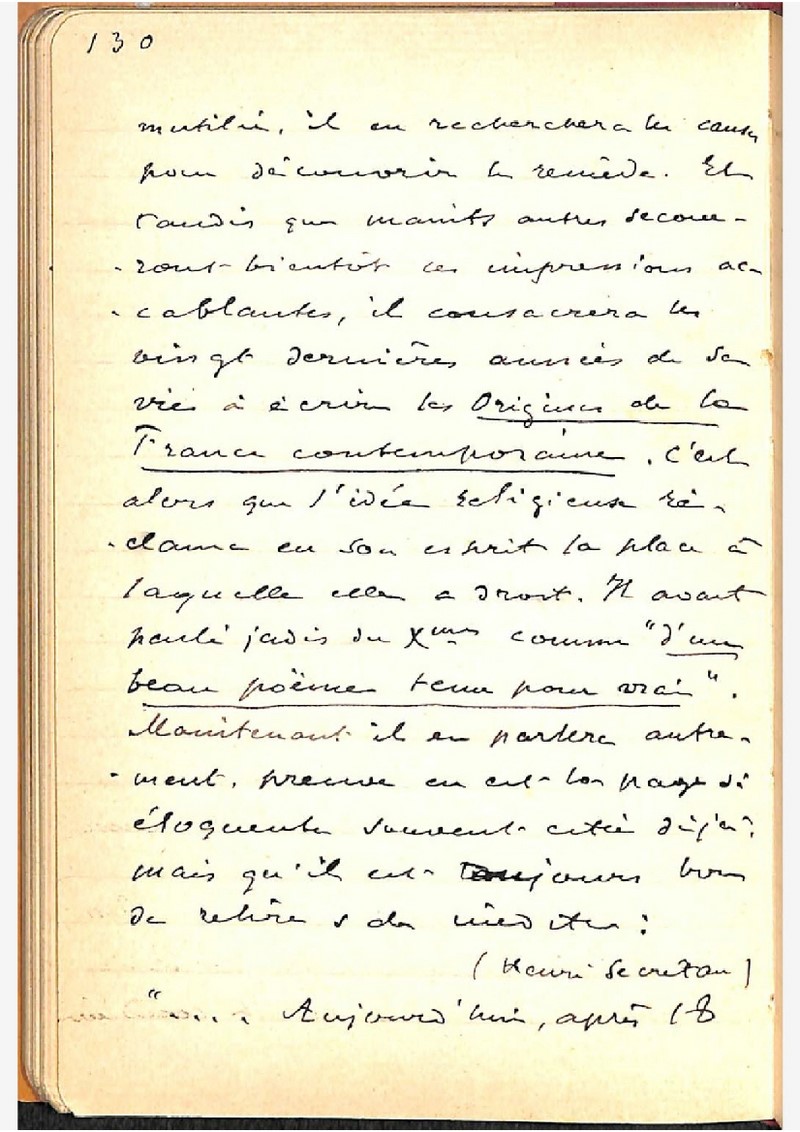 130
mutilée, il en recherchera les causes
pour découvrir le remède. Et
tandis que maints autres secoue-
-ront bientôt ces impressions ac-
-cablantes, il consacrera les
vingt dernières années de sa
vie à écrire les Origines de la
France contemporaine. C'est
alors que l'idée religieuse ré-
-clame en son esprit la place à
laquelle elle a droit. Il avait
parlé jadis du Xme comme "d'un
beau poème tenu pour vrai".
Maintenant il en parlera autre-
-ment, preuve en est la page si
éloquente souvent citée déjà,
mais qu'il est toujours bon
de relire & de méditer :
(Henri Secretan)
"... Aujourd'hui, après 18